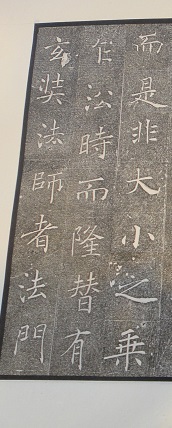 而是非大小之乘
乍沿時而隆替有
玄奘法師者法門